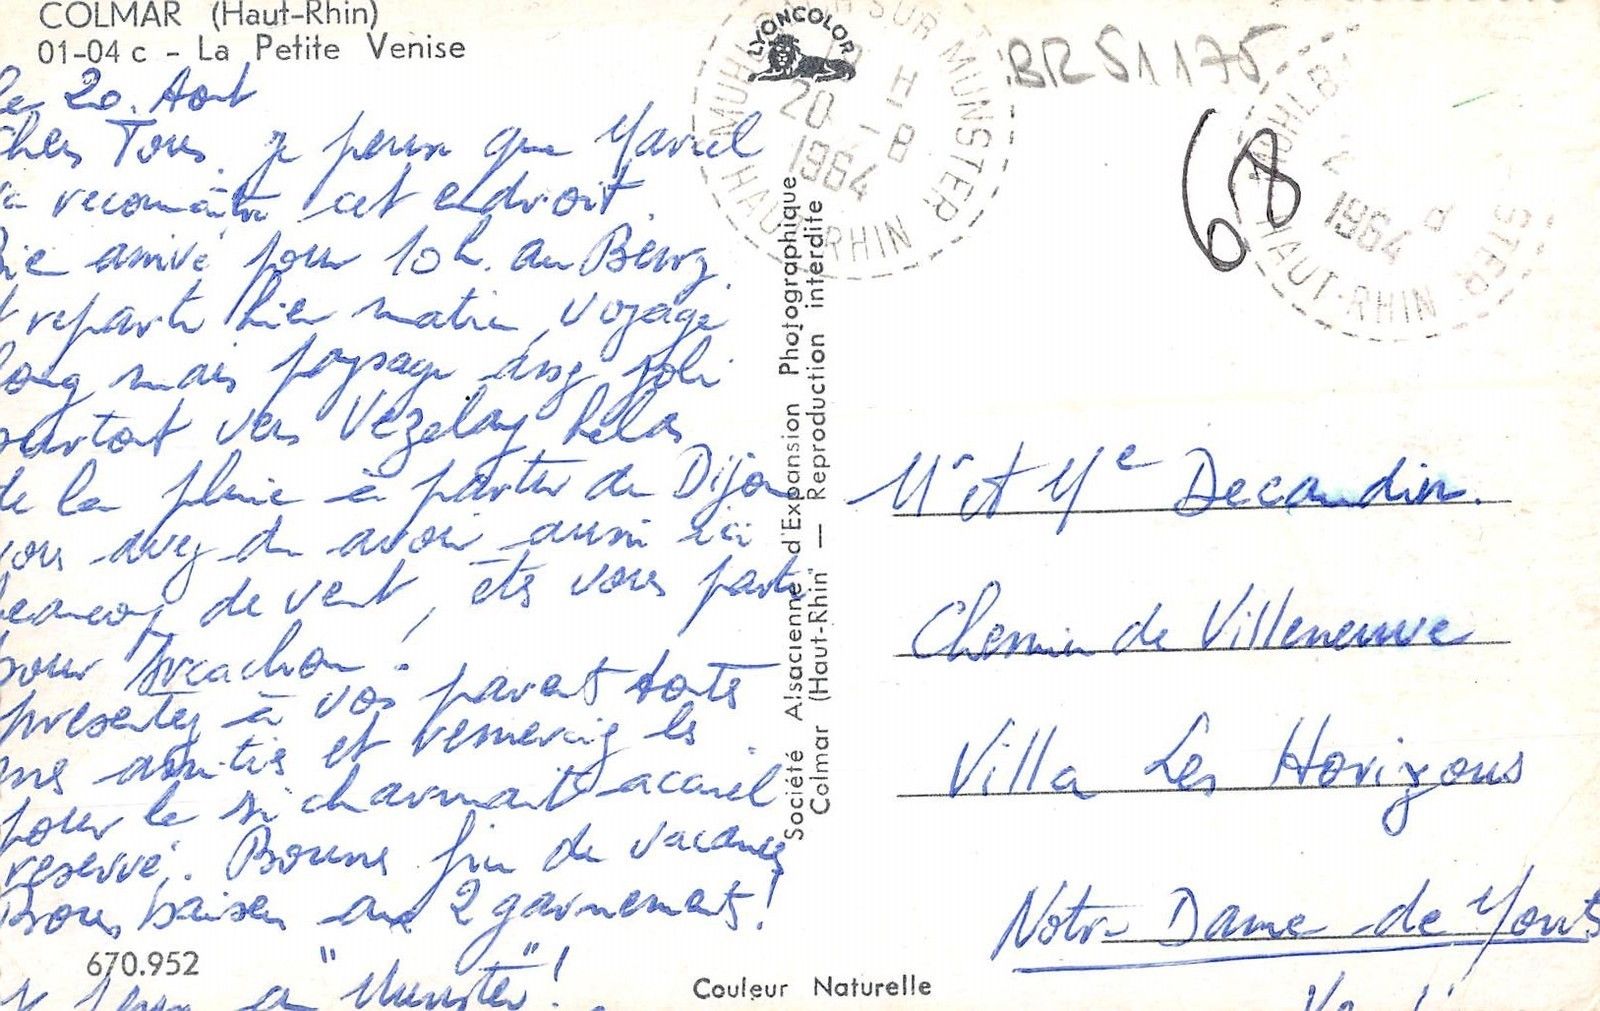 COLMAR (Haut-Rhin)
01-04 c - La Petite Venise
le 20. Aout
Chers Tous, je pense que Marcel
va reconnaître cet endroit.
arrivé pour 10h. au Bourg
et reparti hier matin, voyage
long mais paysage assez joli
surtout vers Vezelay hélas
de la pluie à partir de Dijon
vous avez du avoir aussi ici
beaucoup de vent, êtes vous partis
pour Arcachon?
présentez à vos parents toutes
mes amitiés et remerciez les
pour le si charmant accueil
reservé. Bonne fin de vacances
Bons baisers aux 2 garnements!
670.952
"Munster"!
Couleur Naturelle
LYONCOLOR
Société Alsacienne d'Expansion Photographique
Colmar (Haut-Rhin) — Reproduction interdite
MUHLBACH SUR MUNSTER
20 - 8
1964
HAUT-RHIN
BRS1175
68
MUHLB
1964
STER
HAUT-RHIN
Mr et Me Decaudin.
Chemin de Villeneuve
Villa Les Horizons
Notre Dame de Monts